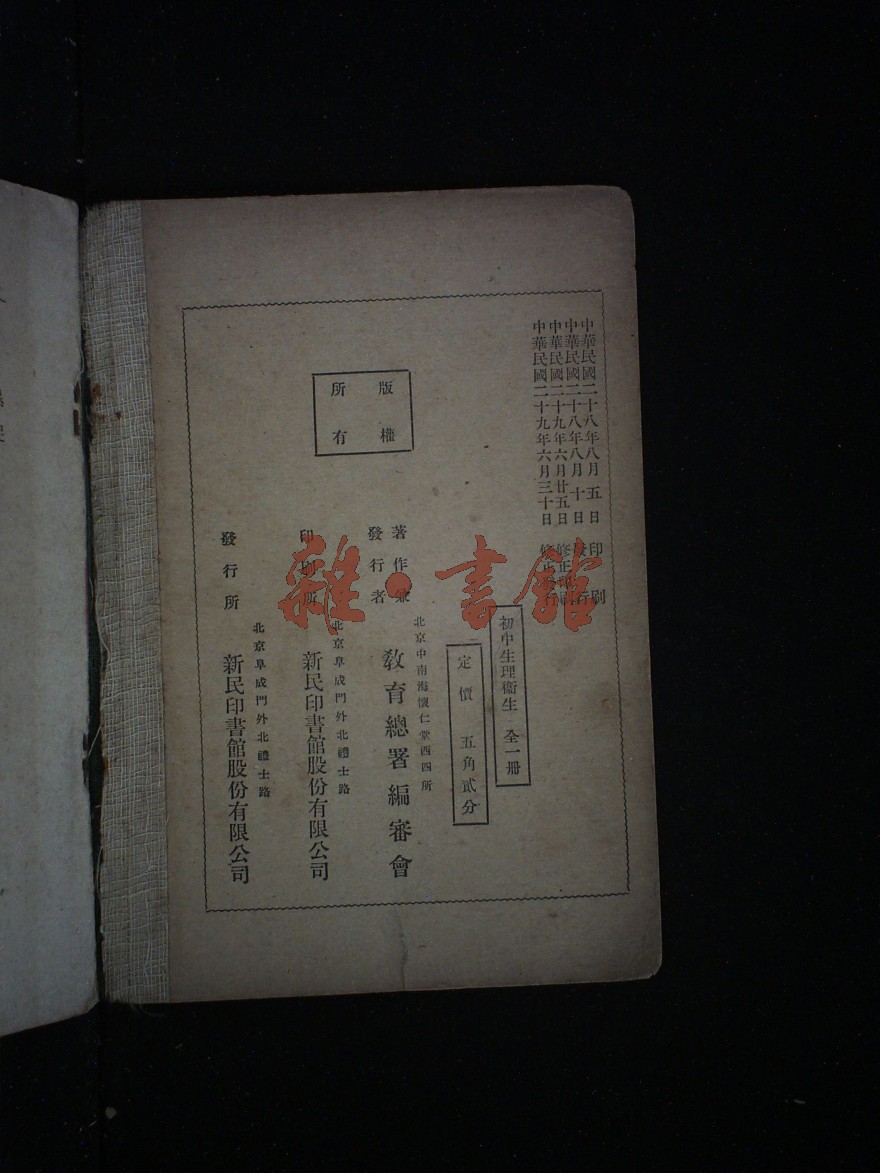 中華民國二十八年八月五日 印刷
中華民國二十八年八月十日 發行
中華民國二十九年六月廿五日 修正印刷
中華民國二十九年六月三十日 修正發行
初中生理衞生 全一冊
定價 五角貳分
版權
所有
著作兼
發行者
北京中南海懷仁堂西四所
教育總署編審會
印刷所
北京阜成門外北禮士路
新民印書館股份有限公司
發行所
北京阜成門外北禮士路
新民印書館股份有限公司
雜·書館